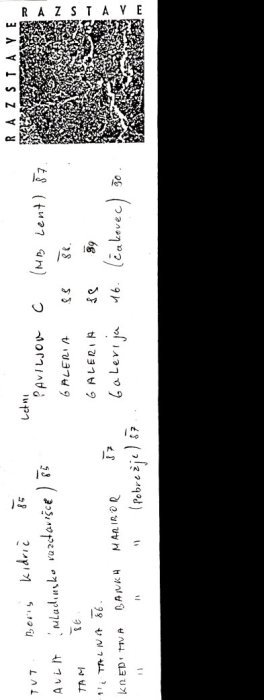 RAZSTAVE
RAZSTAVE
TVT. Boris Kidrič 85
AULA (Mladinsko razstavišče) 85
TAM 86.
TALNA 86.
KREDITNA BANKA MARIBOR 87
" " " (Pobrežje) 87.
Letni
PAVILJON C (MB Lent) 87.
GALERIJA 88.
GALERIJA 89
Galerija 16. (Čakovec) 90.